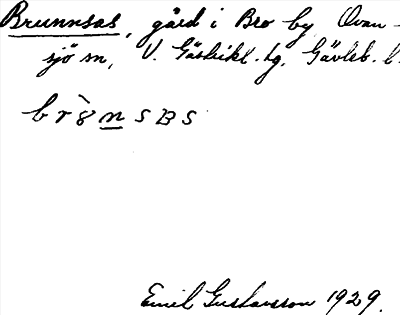 Brunnsas, gård i Bro by, Ovan-
sjö sn, V. Gästrikl. hg, Gävleb. l.
br8nsBs
Emil Gustavsson 1929.